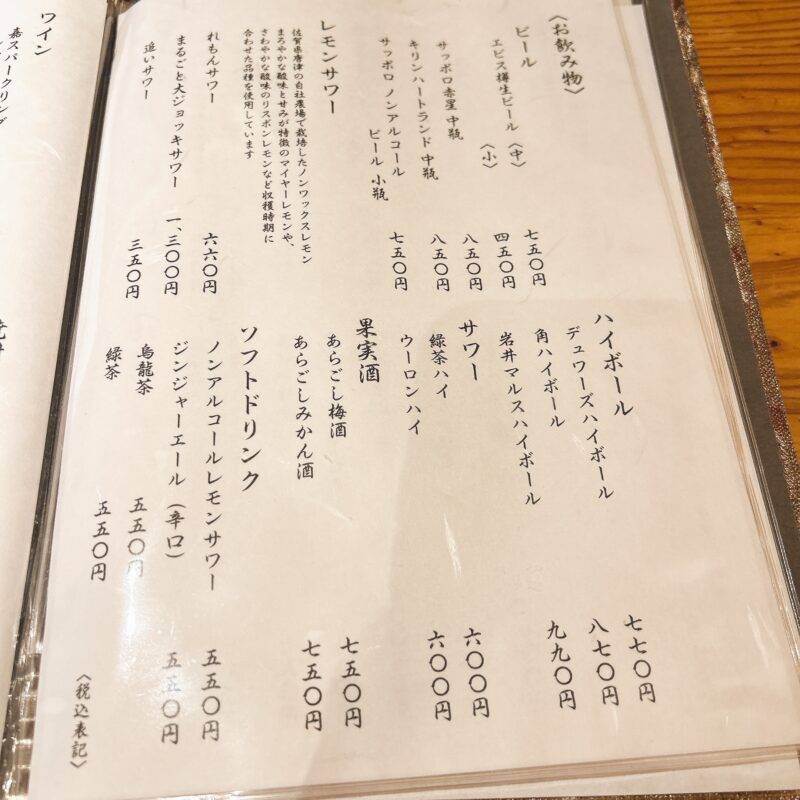 〈お飲み物〉
ビール
エビス樽生ビール〈中〉 七五〇円
〈小〉 四五〇円
サッポロ赤星 中瓶 八五〇円
キリンハートランド 中瓶 八五〇円
サッポロ ノンアルコール
ビール 小瓶 七五〇円
レモンサワー
佐賀県唐津の自社農場で栽培したノンワックスレモン
まろやかな酸味と甘みが特徴のマイヤーレモンや、
さわやかな酸味のリスボンレモンなど収穫時期に
合わせた品種を使用しています
れもんサワー 六六〇円
まるごと大ジョッキサワー 一、三〇〇円
追いサワー 三五〇円
ハイボール
デュワーズハイボール 七七〇円
角ハイボール 八七〇円
岩井マルスハイボール 九九〇円
サワー
緑茶ハイ 六〇〇円
ウーロンハイ 六〇〇円
果実酒
あらごし梅酒 七五〇円
あらごしみかん酒 七五〇円
ソフトドリンク
ノンアルコールレモンサワー 五五〇円
ジンジャーエール（辛口） 五五〇円
烏龍茶 五五〇円
緑茶 五五〇円
〈税込表記〉
ワイン
嘉スパークリング